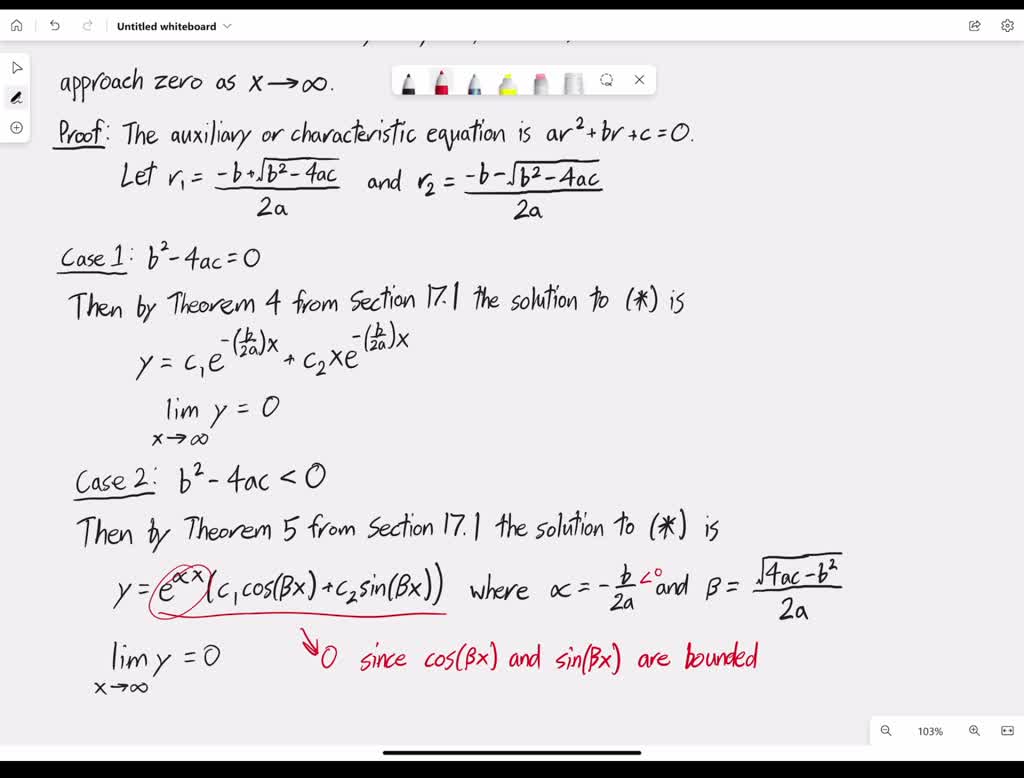 Untitled whiteboard
approach zero as x→∞.
Proof: The auxiliary or characteristic equation is ar²+br+c=0.
Let r₁ = (-b+√(b²-4ac))/(2a) and r₂ = (-b-√(b²-4ac))/(2a)
Case 1: b²-4ac=0
Then by Theorem 4 from Section 17.1 the solution to (*) is
y = c₁e^(-(b/2a)x) + c₂xe^(-(b/2a)x)
lim y = 0
x→∞
Case 2: b²-4ac<0
Then by Theorem 5 from Section 17.1 the solution to (*) is
y = e^(αx)(c₁cos(βx)+c₂sin(βx)) where α = -b/(2a) <0 and β = √(4ac-b²)/(2a)
lim y = 0 0 since cos(βx) and sin(βx) are bounded
x→∞
103%